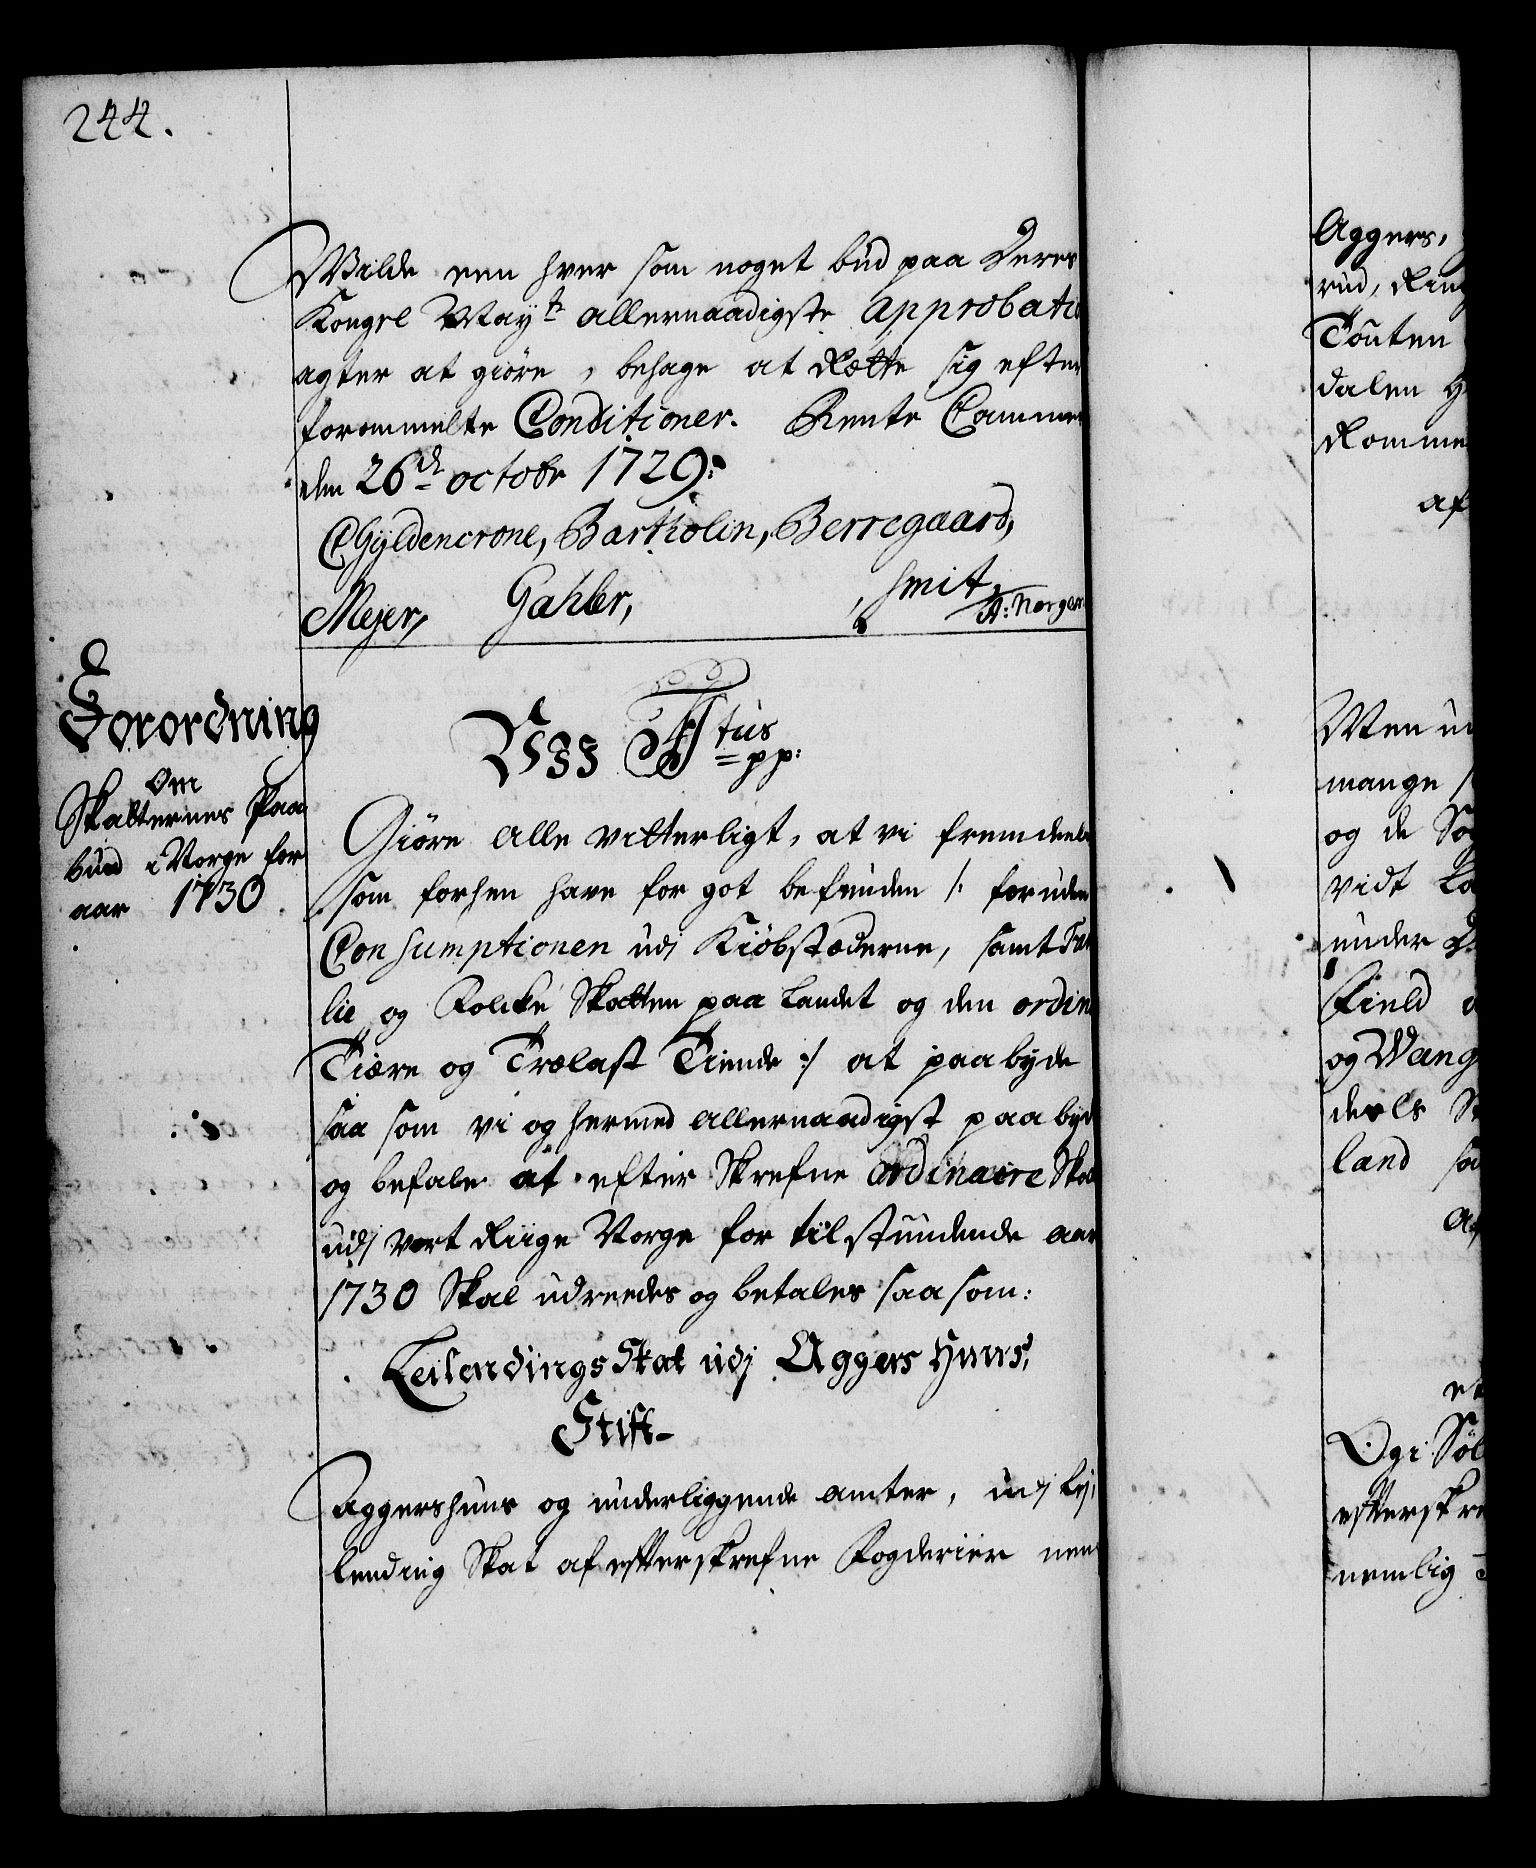 244.
Wilde een hver som noget bud paa Deres
Kongel Mayts allernaadigste approbatio
agter at giøre, behage at Rætte sig efter
forommelte Conditioner. Rente Cammer
den 26de octobr 1729.
CHGyldencrone, Bartholin, Berregaard,
Mejer, Gahler, Smit,
Forordning
Om
Skatternes Paa
bud i Norge for
aar 1730
Giøre alle vitterligt, at vi fremdeels
som forhen have for got befunden /: foruden
Consumptionen udj Kiöbstæderne, samt
lie og Folcke Skatten paa Landet og den ordin
Tiære og Trælast Tiende :/ at paabyde
saa som vi og hermed allernaadigst paa byd
og befale at efter Skrefne ordinaire Skat
udj vort Riige Norge for tilstundende aar
1730 Skal udreedes og betales saa som:
Leilendings Skat udj Aggers Huus,
Stift
Aggershuus og underliggende amter, udj Lej
lending Skat af efterskrefne Fogderier nem
Aggers,
rud, Ring
Touten
dalen
Romme
af
Men
mange
og de
vidt
under
Field
og Mang
deels
land
af
Og i
efterskre
nemlig